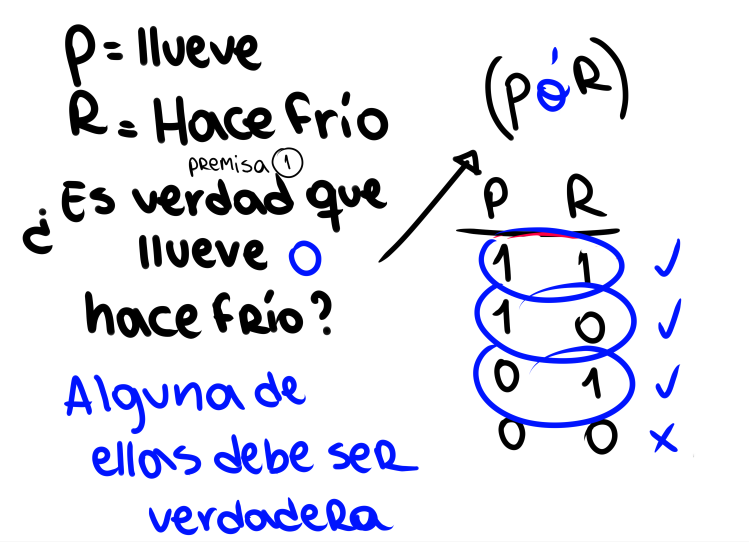 P = llueve
R = Hace frío
premisa 1
¿Es verdad que
llueve O
hace frío?
Alguna de
ellas debe ser
verdadera
(P ó R)
P R
1 1 ✓
1 0 ✓
0 1 ✓
0 0 x